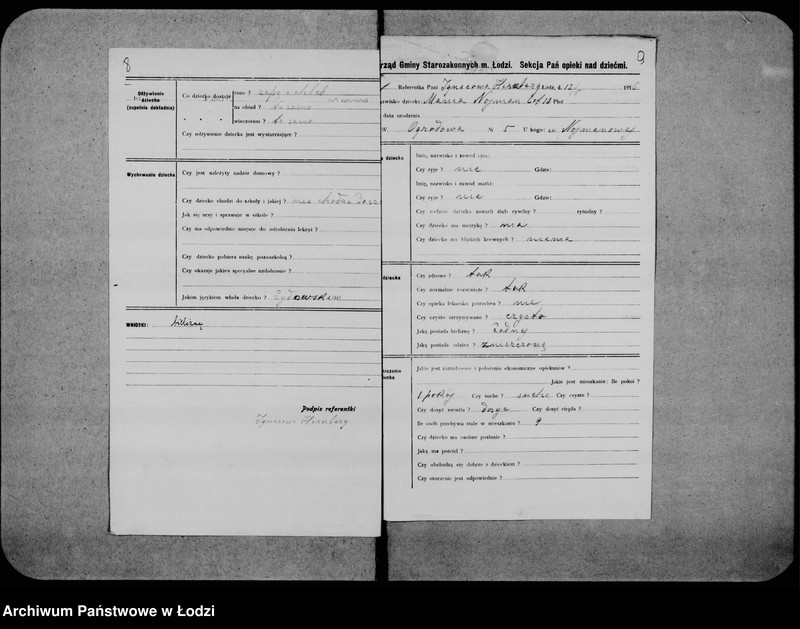 8
Odżywienie dziecka (zupełnie dokładnie)
Co dziecko dostaje
rano ? zupę i chleb
na obiad ? to samo
wieczorem ? to samo
Czy odżywienie dziecka jest wystarczające ?
Wychowanie dziecka
Czy jest należyty nadzór domowy ?
Czy dziecko chodzi do szkoły i jakiej ? nie
Jak się uczy i sprawuje w szkole ?
Czy ma odpowiednie miejsce do odrobienia lekcyi ?
Czy dziecko pobiera naukę pozaszkolną ?
Czy okazuje jakieś specyalne uzdolnienie ?
Jakim językiem włada dziecko ? żydowskim
WNIOSKI:
Podpis referantki
Ignacowa Herzberg
9
rząd Gminy Starozakonnych m. Łodzi. Sekcja Pań opieki nad dziećmi.
Referentka Pani Ignacowa Herzberg Łódź, d. 12 191
zwisko dziecka: Masza Nojman lat 12 Płeć
data urodzenia
Ogrodowa № 5 U kogo: u Nojmanowej
a dziecka
Imię, nazwisko i zawód ojca:
Czy żyje ? nie Gdzie:
Imię, nazwisko i zawód matki:
Czy żyje ? nie Gdzie:
Czy rodzice dziecka zawarli ślub cywilny ? rytualny ?
Czy dziecko ma metrykę ? nie
Czy dziecko ma bliskich krewnych ? niema
dziecka
Czy zdrowe ? tak
Czy normalnie rozwinięte ? tak
Czy opieka lekarska potrzebna ? nie
Czy czysto utrzymywane ? czysto
Jaką posiada bieliznę ? żadnej
Jaką posiada odzież ? zniszczoną
Jakie jest zatrudnienie i położenie ekonomiczne opiekunów ?
Jakie jest mieszkanie: Ile pokoi ?
1 pokój Czy suche ? suche Czy czyste ?
Czy dosyć światła ? Czy dosyć ciepła ?
Ile osób przebywa stale w mieszkaniu ? 9
Czy dziecko ma osobne posłanie ?
Jaką ma pościel ?
Czy obchodzą się dobrze z dzieckiem ?
Czy otoczenie jest odpowiednie ?
Archiwum Państwowe w Łodzi